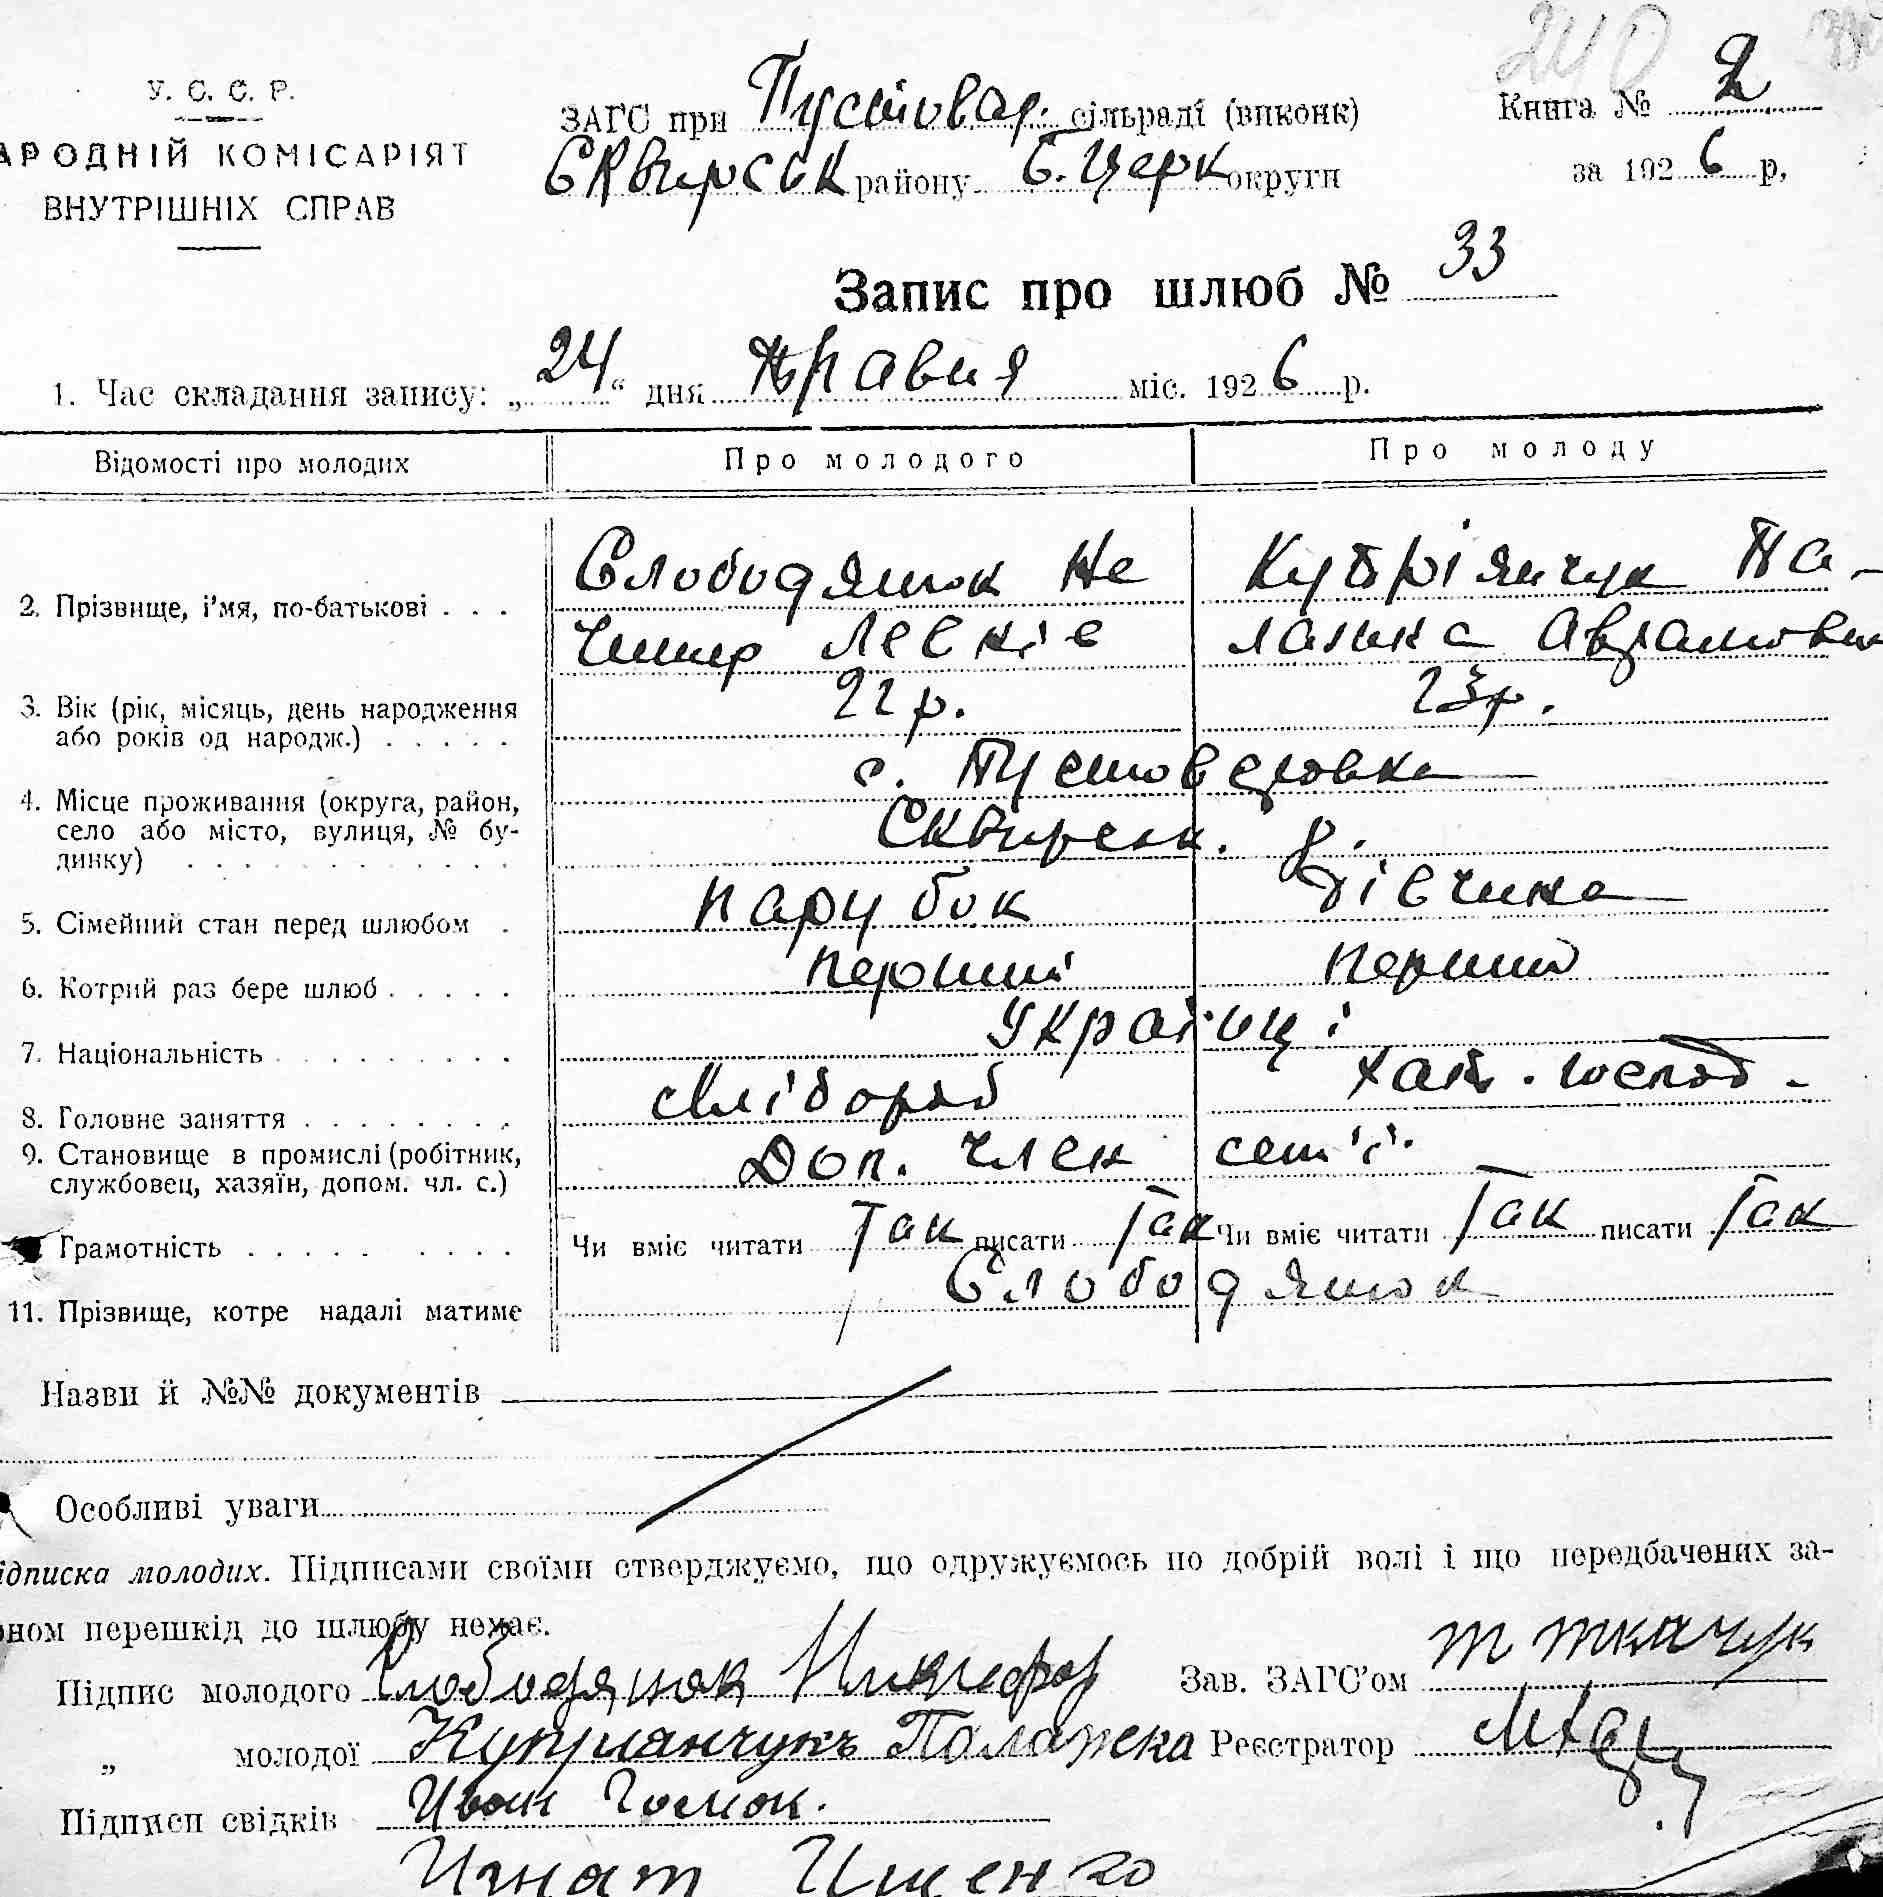 240
У. С. С. Р.
АРОДНІЙ КОМІСАРІЯТ
ВНУТРІШНІХ СПРАВ
ЗАГС при Пустовар. сільраді (виконк)
Сквирськ району Б. Церк округи
Книга № 2
за 1926 р,
Запис про шлюб № 33
1. Час складання запису: „24“ дня травня міс. 1926 р.
Відомості про молодих Про молодого Про молоду
2. Прізвище, і'мя, по-батькові . . . Слободянюк Не Купріянчук Па-
Левків Аврамовна
3. Вік (рік, місяць, день народження 22 р. 23 р.
або років од народж.) . . . . .
с. Пустоварівка
4. Місце проживання (округа, район,
село або місто, вулиця, № бу- Сквирськ. р.
динку) . . . . . . . . . . . .
5. Сімейний стан перед шлюбом . парубок дівчина
6. Котрий раз бере шлюб . . . . . перший перший
7. Національність . . . . . . . . . Українці
8. Головне заняття . . . . . . . . . хлібороб хат. господ.
9. Становище в промислі (робітник, Доп. член сем'ї.
службовец, хазяїн, допом. чл. с.)
Грамотність . . . . . . . . . Чи вміє читати Так писати Так Чи вміє читати Так писати Так
11. Прізвище, котре надалі матиме Слободянюк
Назви й №№ документів
Особливі уваги
ідписка молодих. Підписами своїми стверджуємо, що одружуємось по добрій волі і що передбачених за-
оном перешкід до шлюбу немає.
Підпис молодого Слободянюк Никифор Зав. ЗАГС'ом Т Ткачук
„ молодої Куприянчукъ Палажка Реєстратор
Підписи свідків Иван
Игнат Ищенко